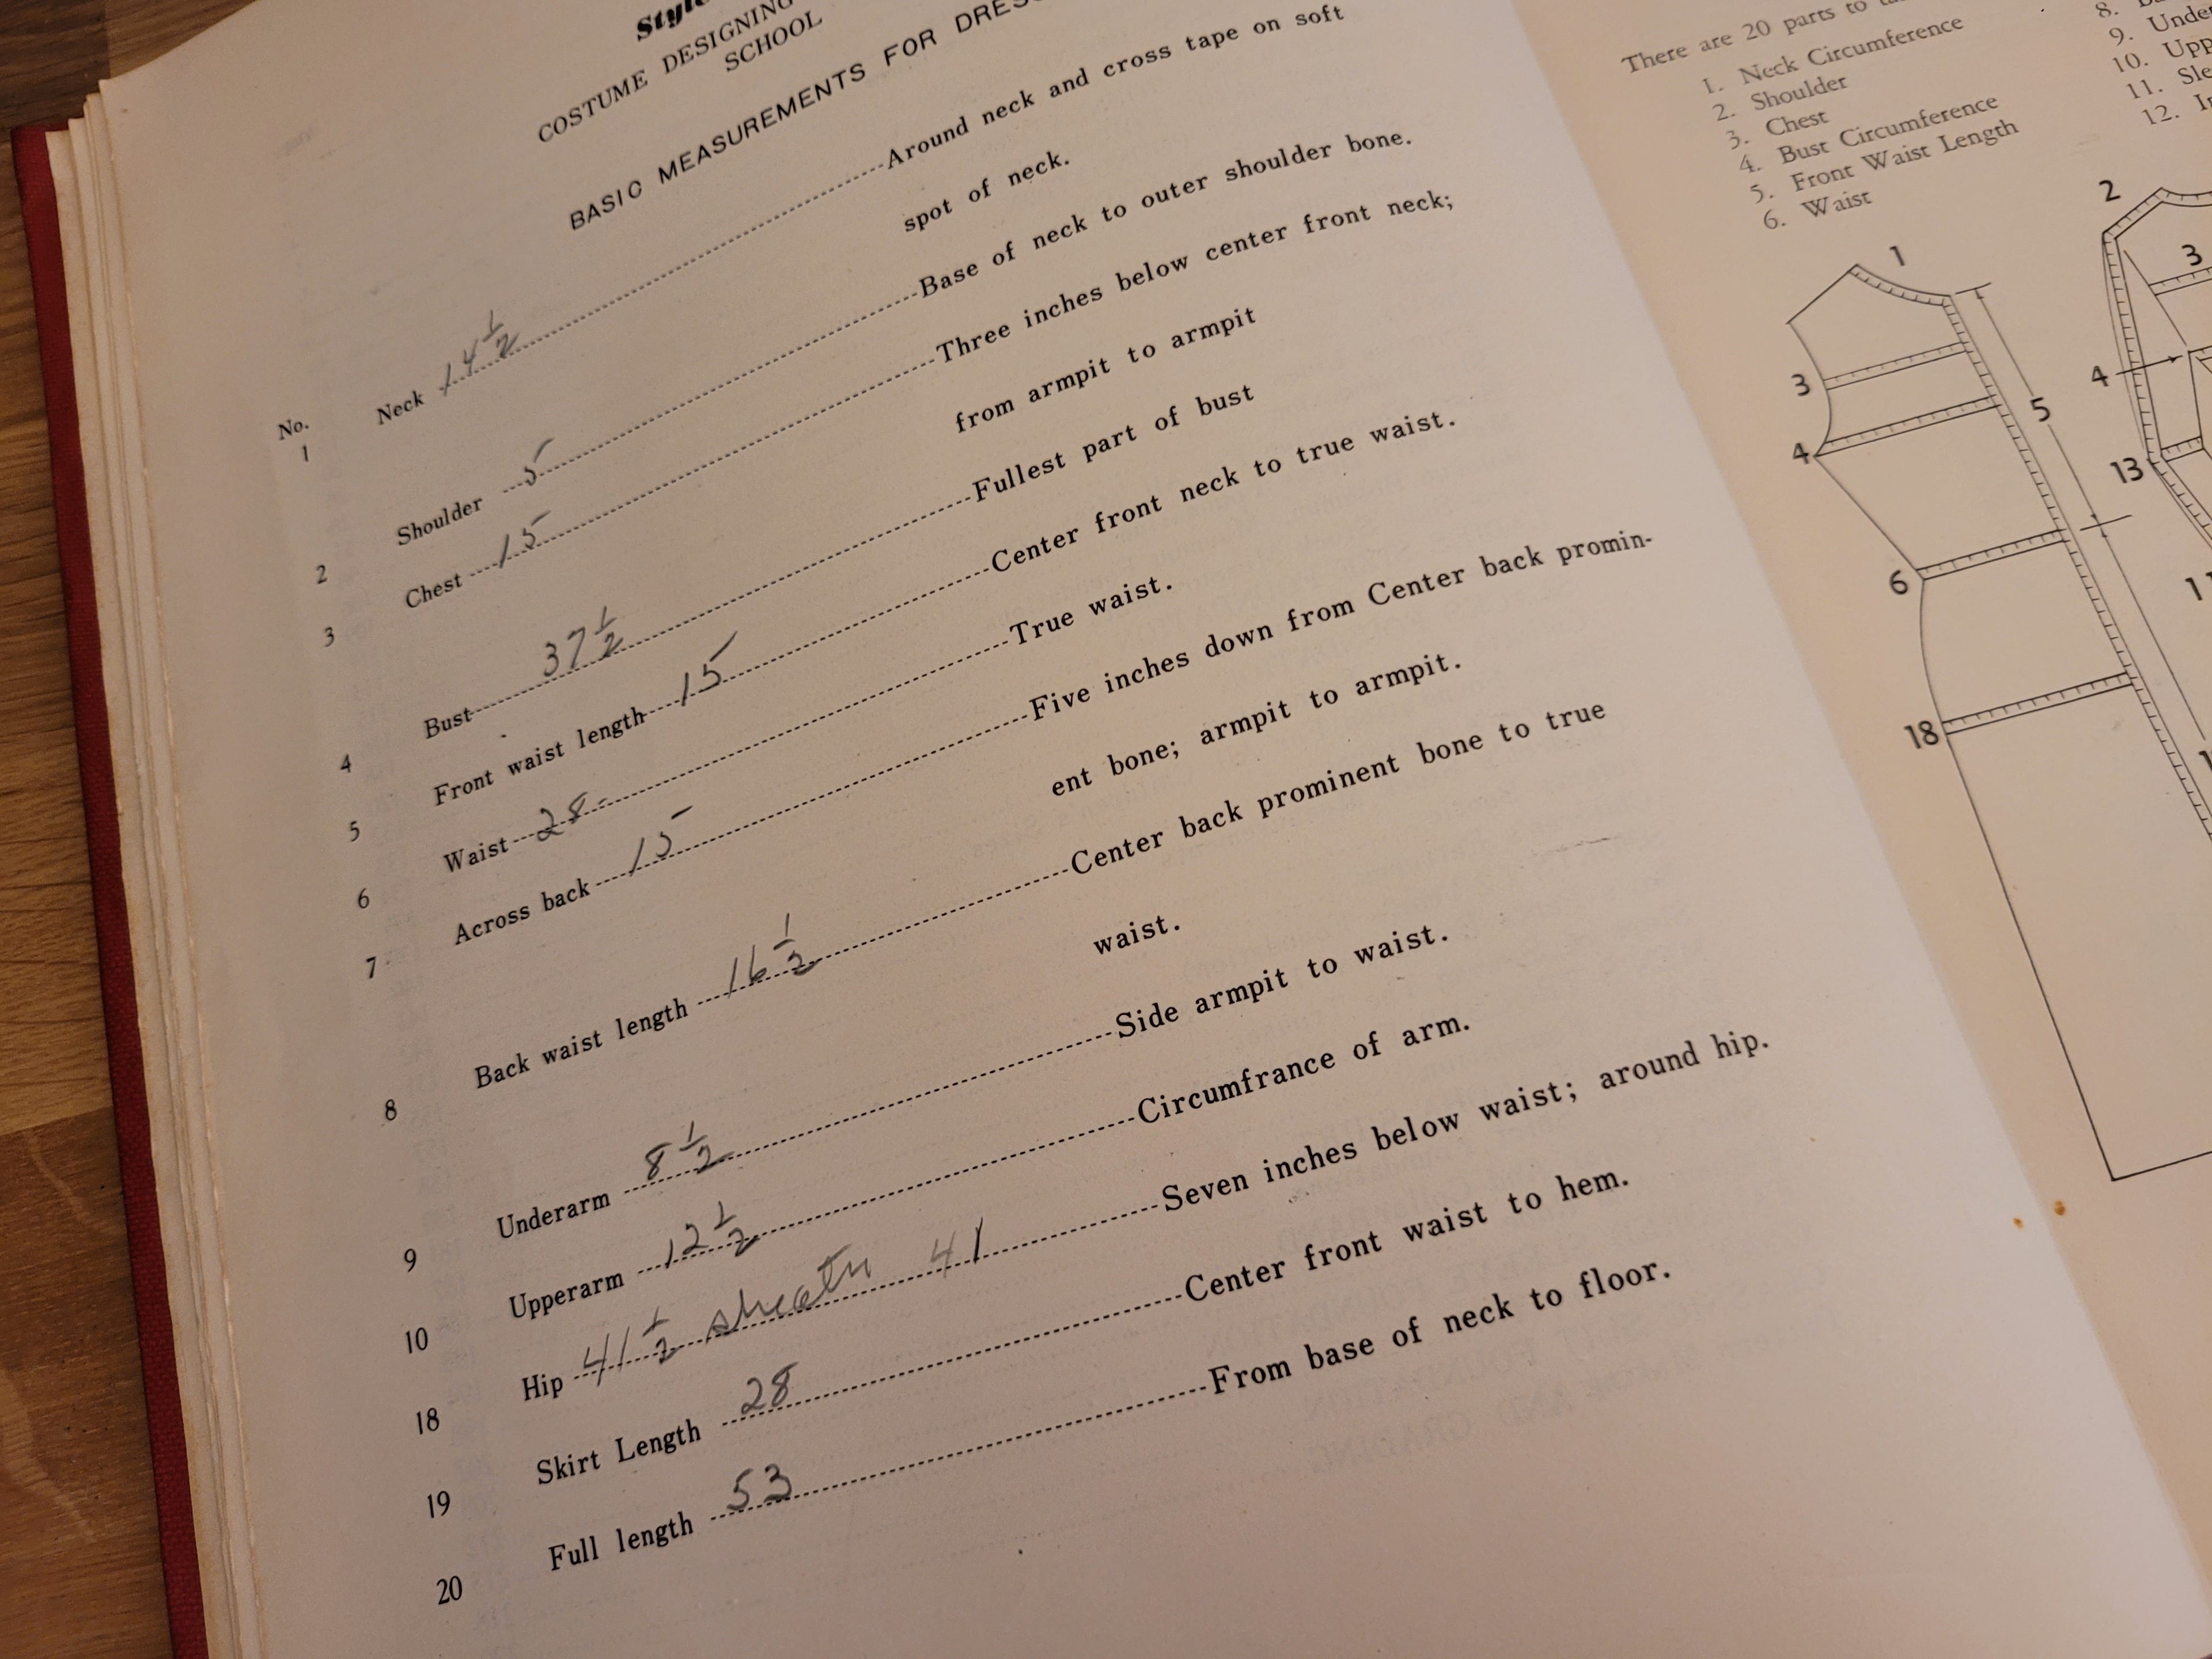 COSTUME DESIGNING
SCHOOL
BASIC MEASUREMENTS FOR
No.
1 Neck 14 1/2 Around neck and cross tape on soft
spot of neck.
2 Shoulder 5 Base of neck to outer shoulder bone.
3 Chest 15 Three inches below center front neck;
from armpit to armpit
4 Bust 37 1/2 Fullest part of bust
5 Front waist length 15 Center front neck to true waist.
6 Waist 28 True waist.
7 Across back 15 Five inches down from Center back promin-
ent bone; armpit to armpit.
8 Back waist length 16 1/2 Center back prominent bone to true
waist.
9 Underarm 8 1/2 Side armpit to waist.
10 Upperarm 12 1/2 Circumfrance of arm.
18 Hip 41 1/2 sheath 41 Seven inches below waist; around hip.
19 Skirt Length 28 Center front waist to hem.
20 Full length 53 From base of neck to floor.
There are 20 parts to
1. Neck Circumference
2. Shoulder
3. Chest
4. Bust Circumference
5. Front Waist Length
6. Waist
8.
9.
10.
11.
12.
1
2
3
3
4
4
5
13
6
18